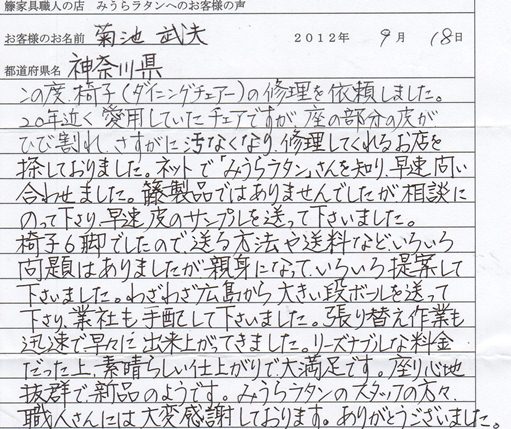 籐家具職人の店　みうらラタンへのお客様の声
お客様のお名前　菊池 武夫　2012年 9月 18日
都道府県名　神奈川県
この度、椅子(ダイニングチェアー)の修理を依頼しました。
20年近く愛用していたチェアですが、座の部分の皮が
ひび割れ、さすがに汚なくなり、修理してくれるお店を
探しておりました。ネットで「みうらラタン」さんを知り、早速問い
合わせました。籐製品ではありませんでしたが相談に
のって下さり、早速皮のサンプルを送って下さいました。
椅子6脚でしたので、送る方法や送料などいろいろ
問題はありましたが、親身になって、いろいろ提案して
下さいました。わざわざ広島から大きい段ボールを送って
下さり、業社も手配して下さいました。張り替え作業も
迅速で早々に出来上がってきました。リーズナブルな料金
だった上、素晴らしい仕上がりで大満足です。座り心地
抜群で新品のようです。みうらラタンのスタッフの方々、
職人さんには大変感謝しております。ありがとうございました。